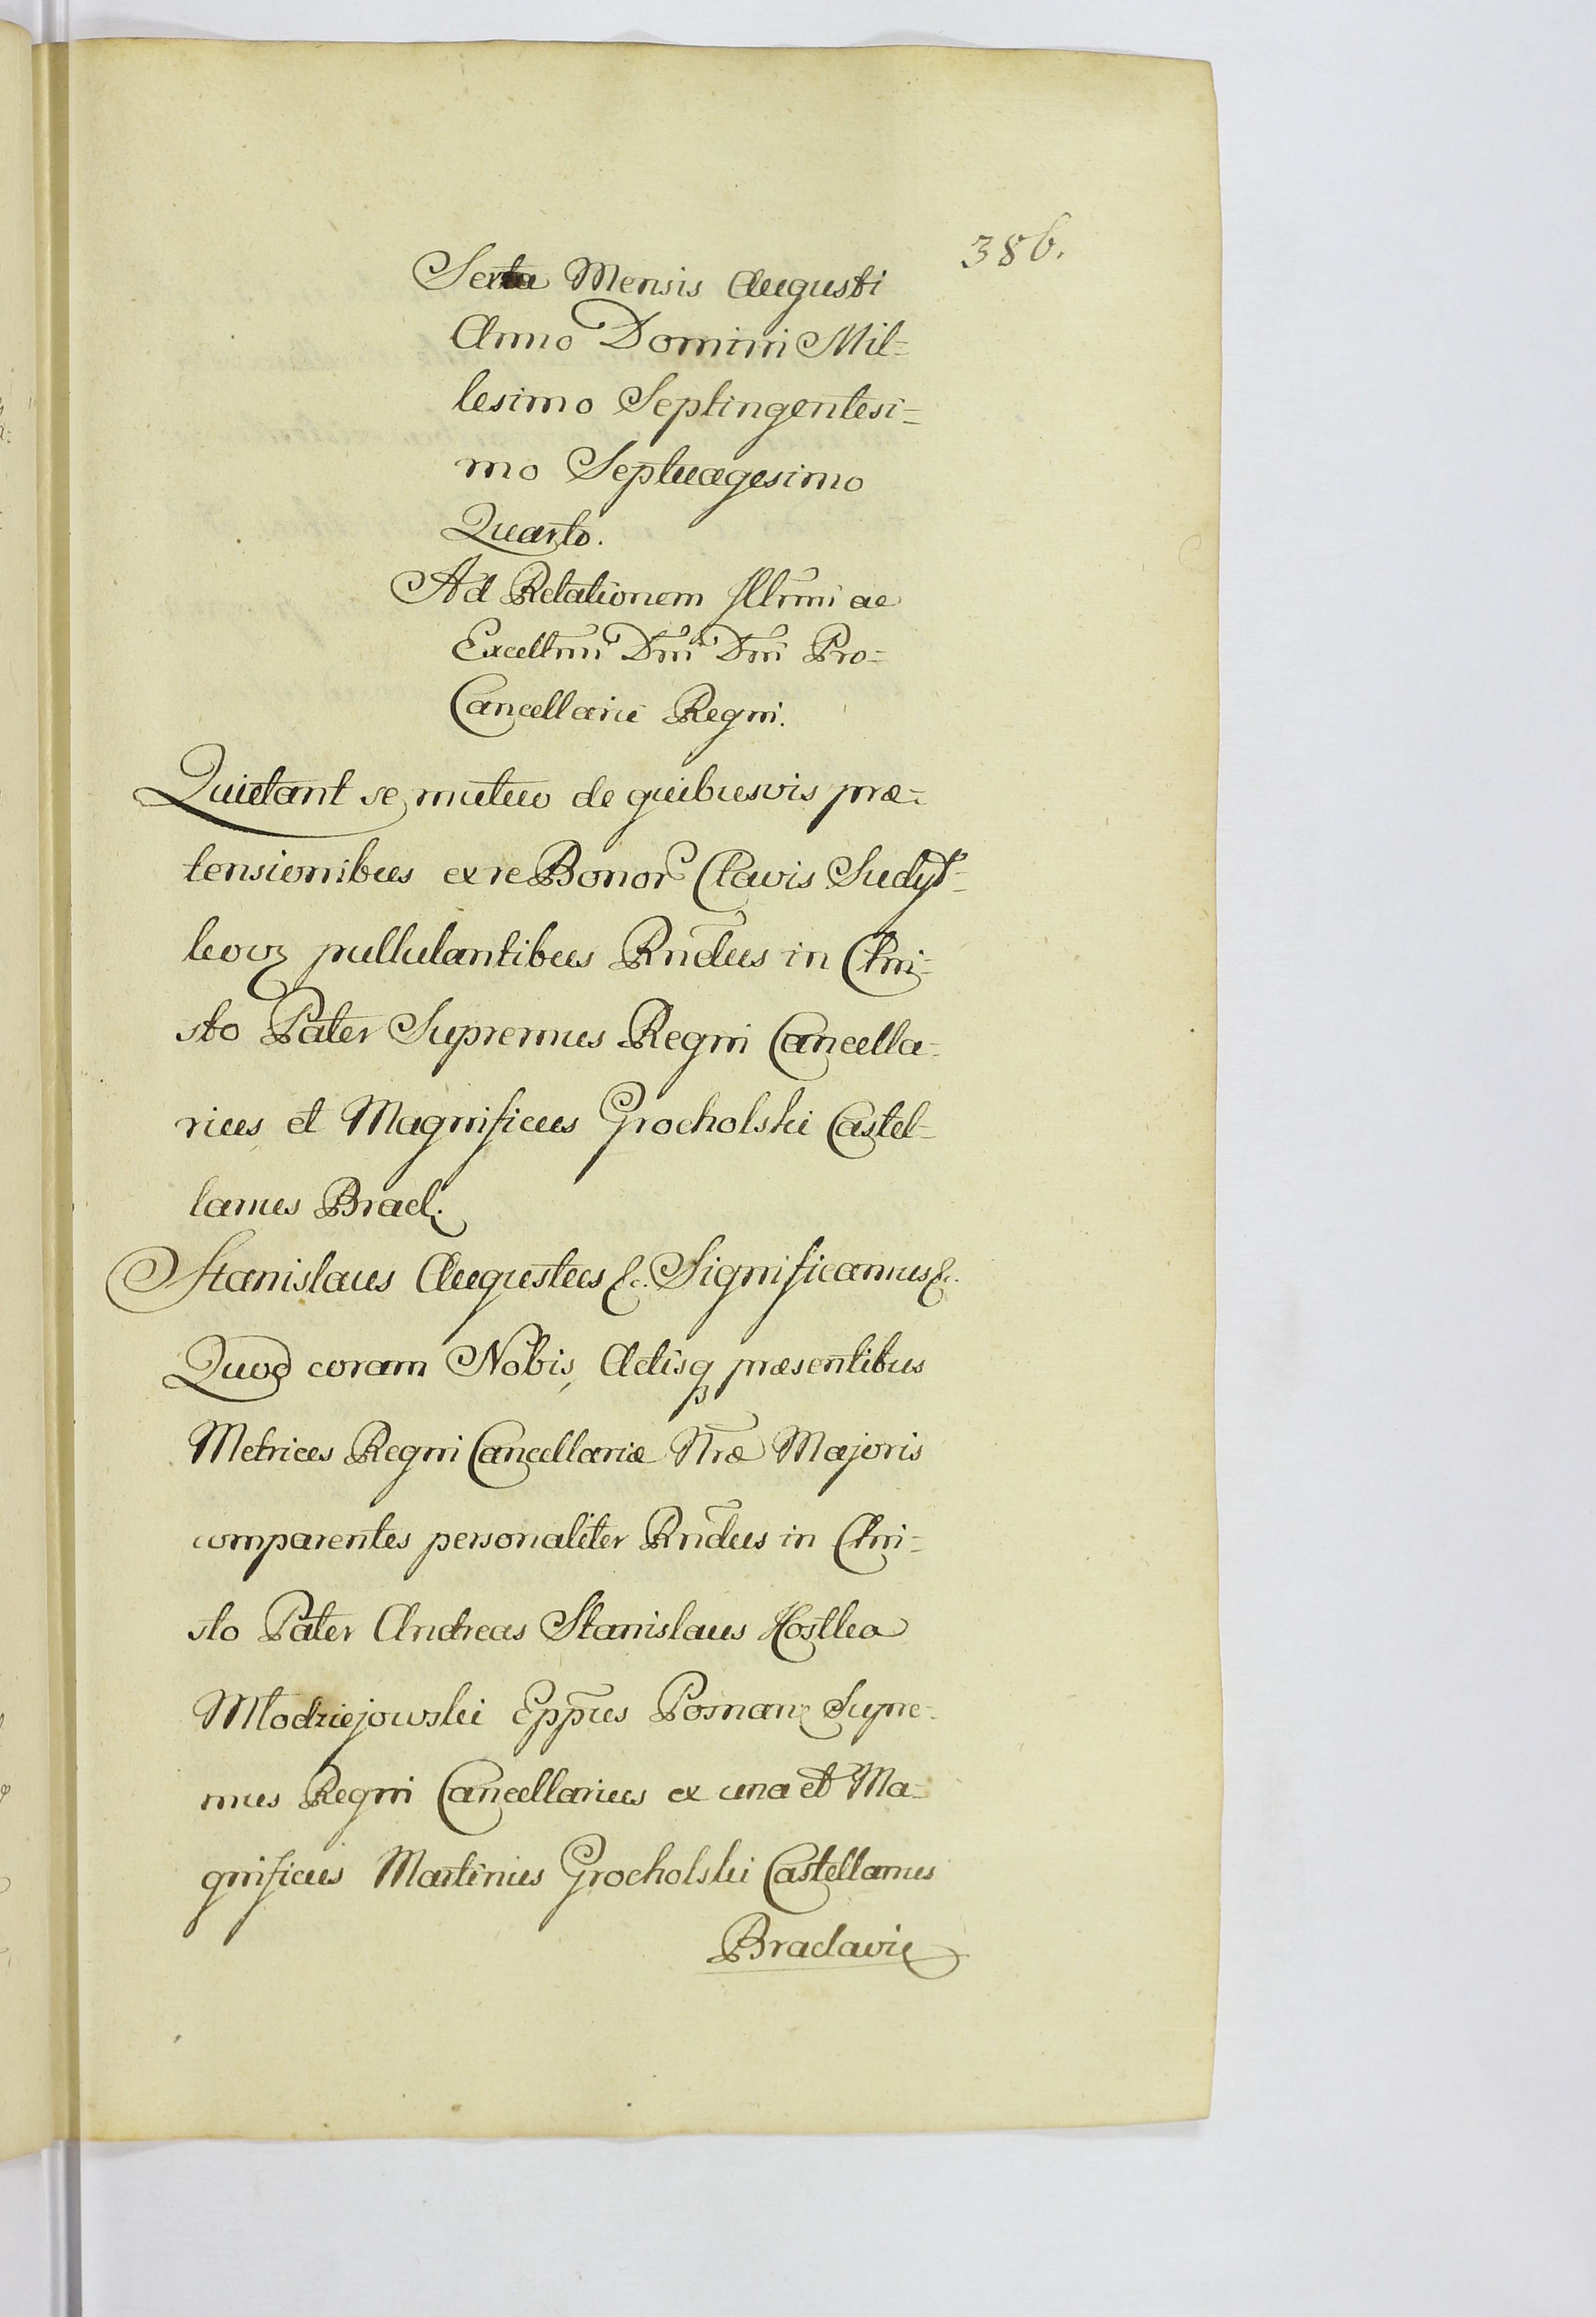 386.
Sexta Mensis Augusti
Anno Domini Mil=
lesimo Septingentesi=
mo Septuagesimo
Quarto.
Ad Relationem Illrmi ac
Excellmi Dni Dni Pro=
Cancellarii Regni.
Quietant se mutuo de quibusvis præ=
tensionibus ex re Bonor Clavis Sudył=
kow pullulantibus Rndus in Chri=
sto Pater Supremus Regni Cancella=
rius et Magnificus Grocholski Castel=
lanus Bracl.
Stanislaus Augustus &c. Significamus &c.
Quod coram Nobis, Actisq præsentibus
Metrices Regni Cancellariæ Nræ Majoris
comparentes personaliter Rndus in Chri=
sto Pater Andreas Stanislaus Kostka
Młodziejowski Eppus Posnan: Supre=
mus Regni Cancellarius ex una et Ma=
gnificus Martinus Grocholski Castellanus
Braclavie